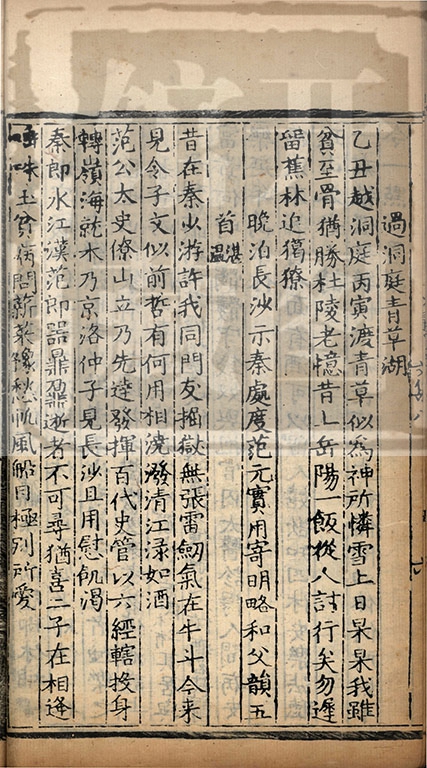 過洞庭青草湖
乙丑越洞庭丙寅渡青草似為神所憐雪上日杲杲我雖
貧至骨猶勝杜陵老憶昔上岳陽一飯從人討行矣勿遲
留蕉林追獦獠
晚泊長沙示秦處度范元實用寄明略和父韻五
首湛溫
昔在秦少游許我同門友掘獄無張雷劒氣在牛斗今來
見令子文似前哲有何用相澆潑清江渌如酒
范公太史僚山立乃先達發揮百代史管以六經轄投身
轉嶺海就木乃京洛仲子見長沙且用慰飢渴
秦郎水江漢范郎器鼎鼐逝者不可尋猶喜二子在相逢
唾珠玉貧病問薪菜豫愁帆風船目極別所愛